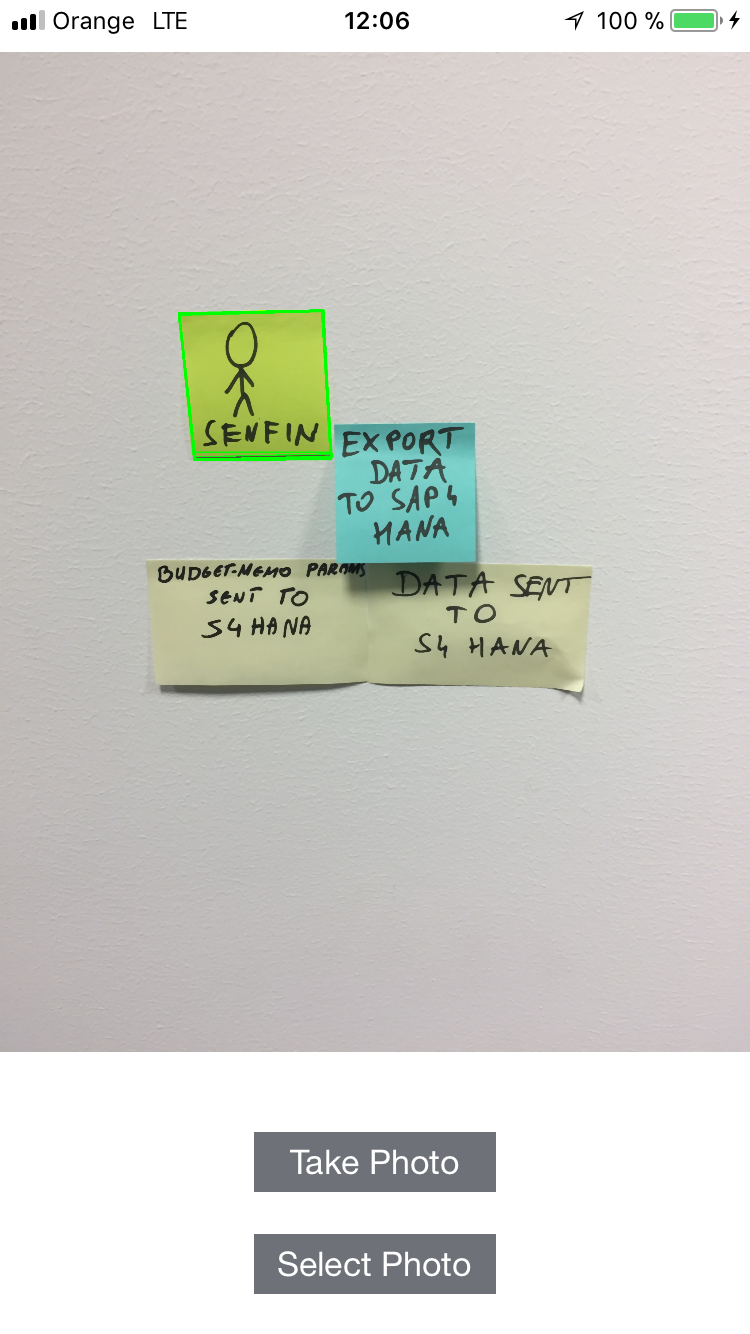 Orange LTE 12:06 100 %
SENFIN
EXPORT
DATA
TO SAP4
HANA
BUDGET-MEMO PARAMS
SENT TO
S4 HANA
DATA SENT
TO
S4 HANA
Take Photo
Select Photo